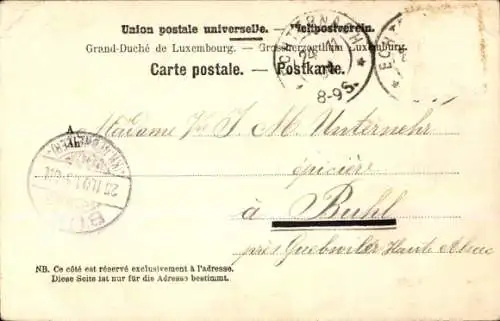 Union postale universelle. — Weltpostverein.
Grand-Duché de Luxembourg. — Grossherzogthum Luxemburg.
Carte postale. — Postkarte.
ECHTERNACH
24
8-9S.
ECH
A
An
Madame Vve J. M. Unternehr
épicière
à Buhl
près Guebwiler Haute Alsace
NB. Ce côté est réservé exclusivement à l'adresse.
Diese Seite ist nur für die Adresse bestimmt.